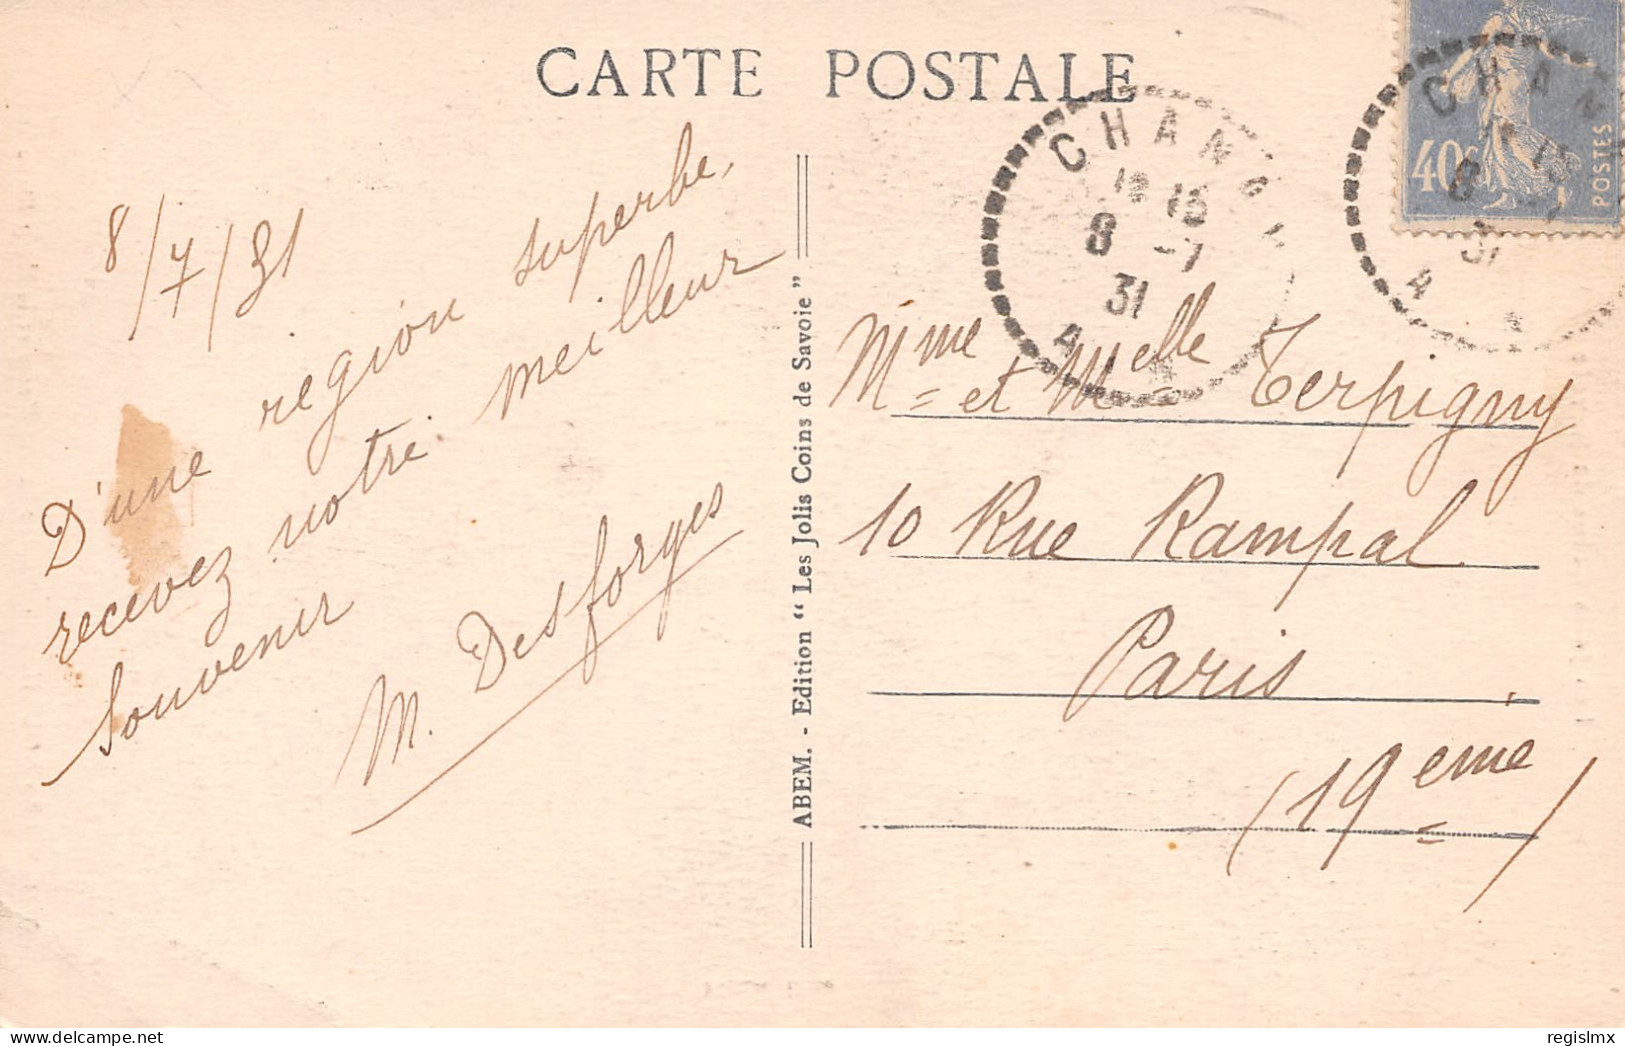 CARTE POSTALE
8/7/31
D'une region superbe,
recevez notre meilleur
souvenir
M. Desforges
ABEM. - Edition "Les Jolis Coins de Savoie"
CHANA
15
8 -7
31
A
40c
POSTES
CHAN
15
8 -7
31
A
Mme et Melle Terpigny
10 Rue Rampal
Paris
(19eme)
regislmx